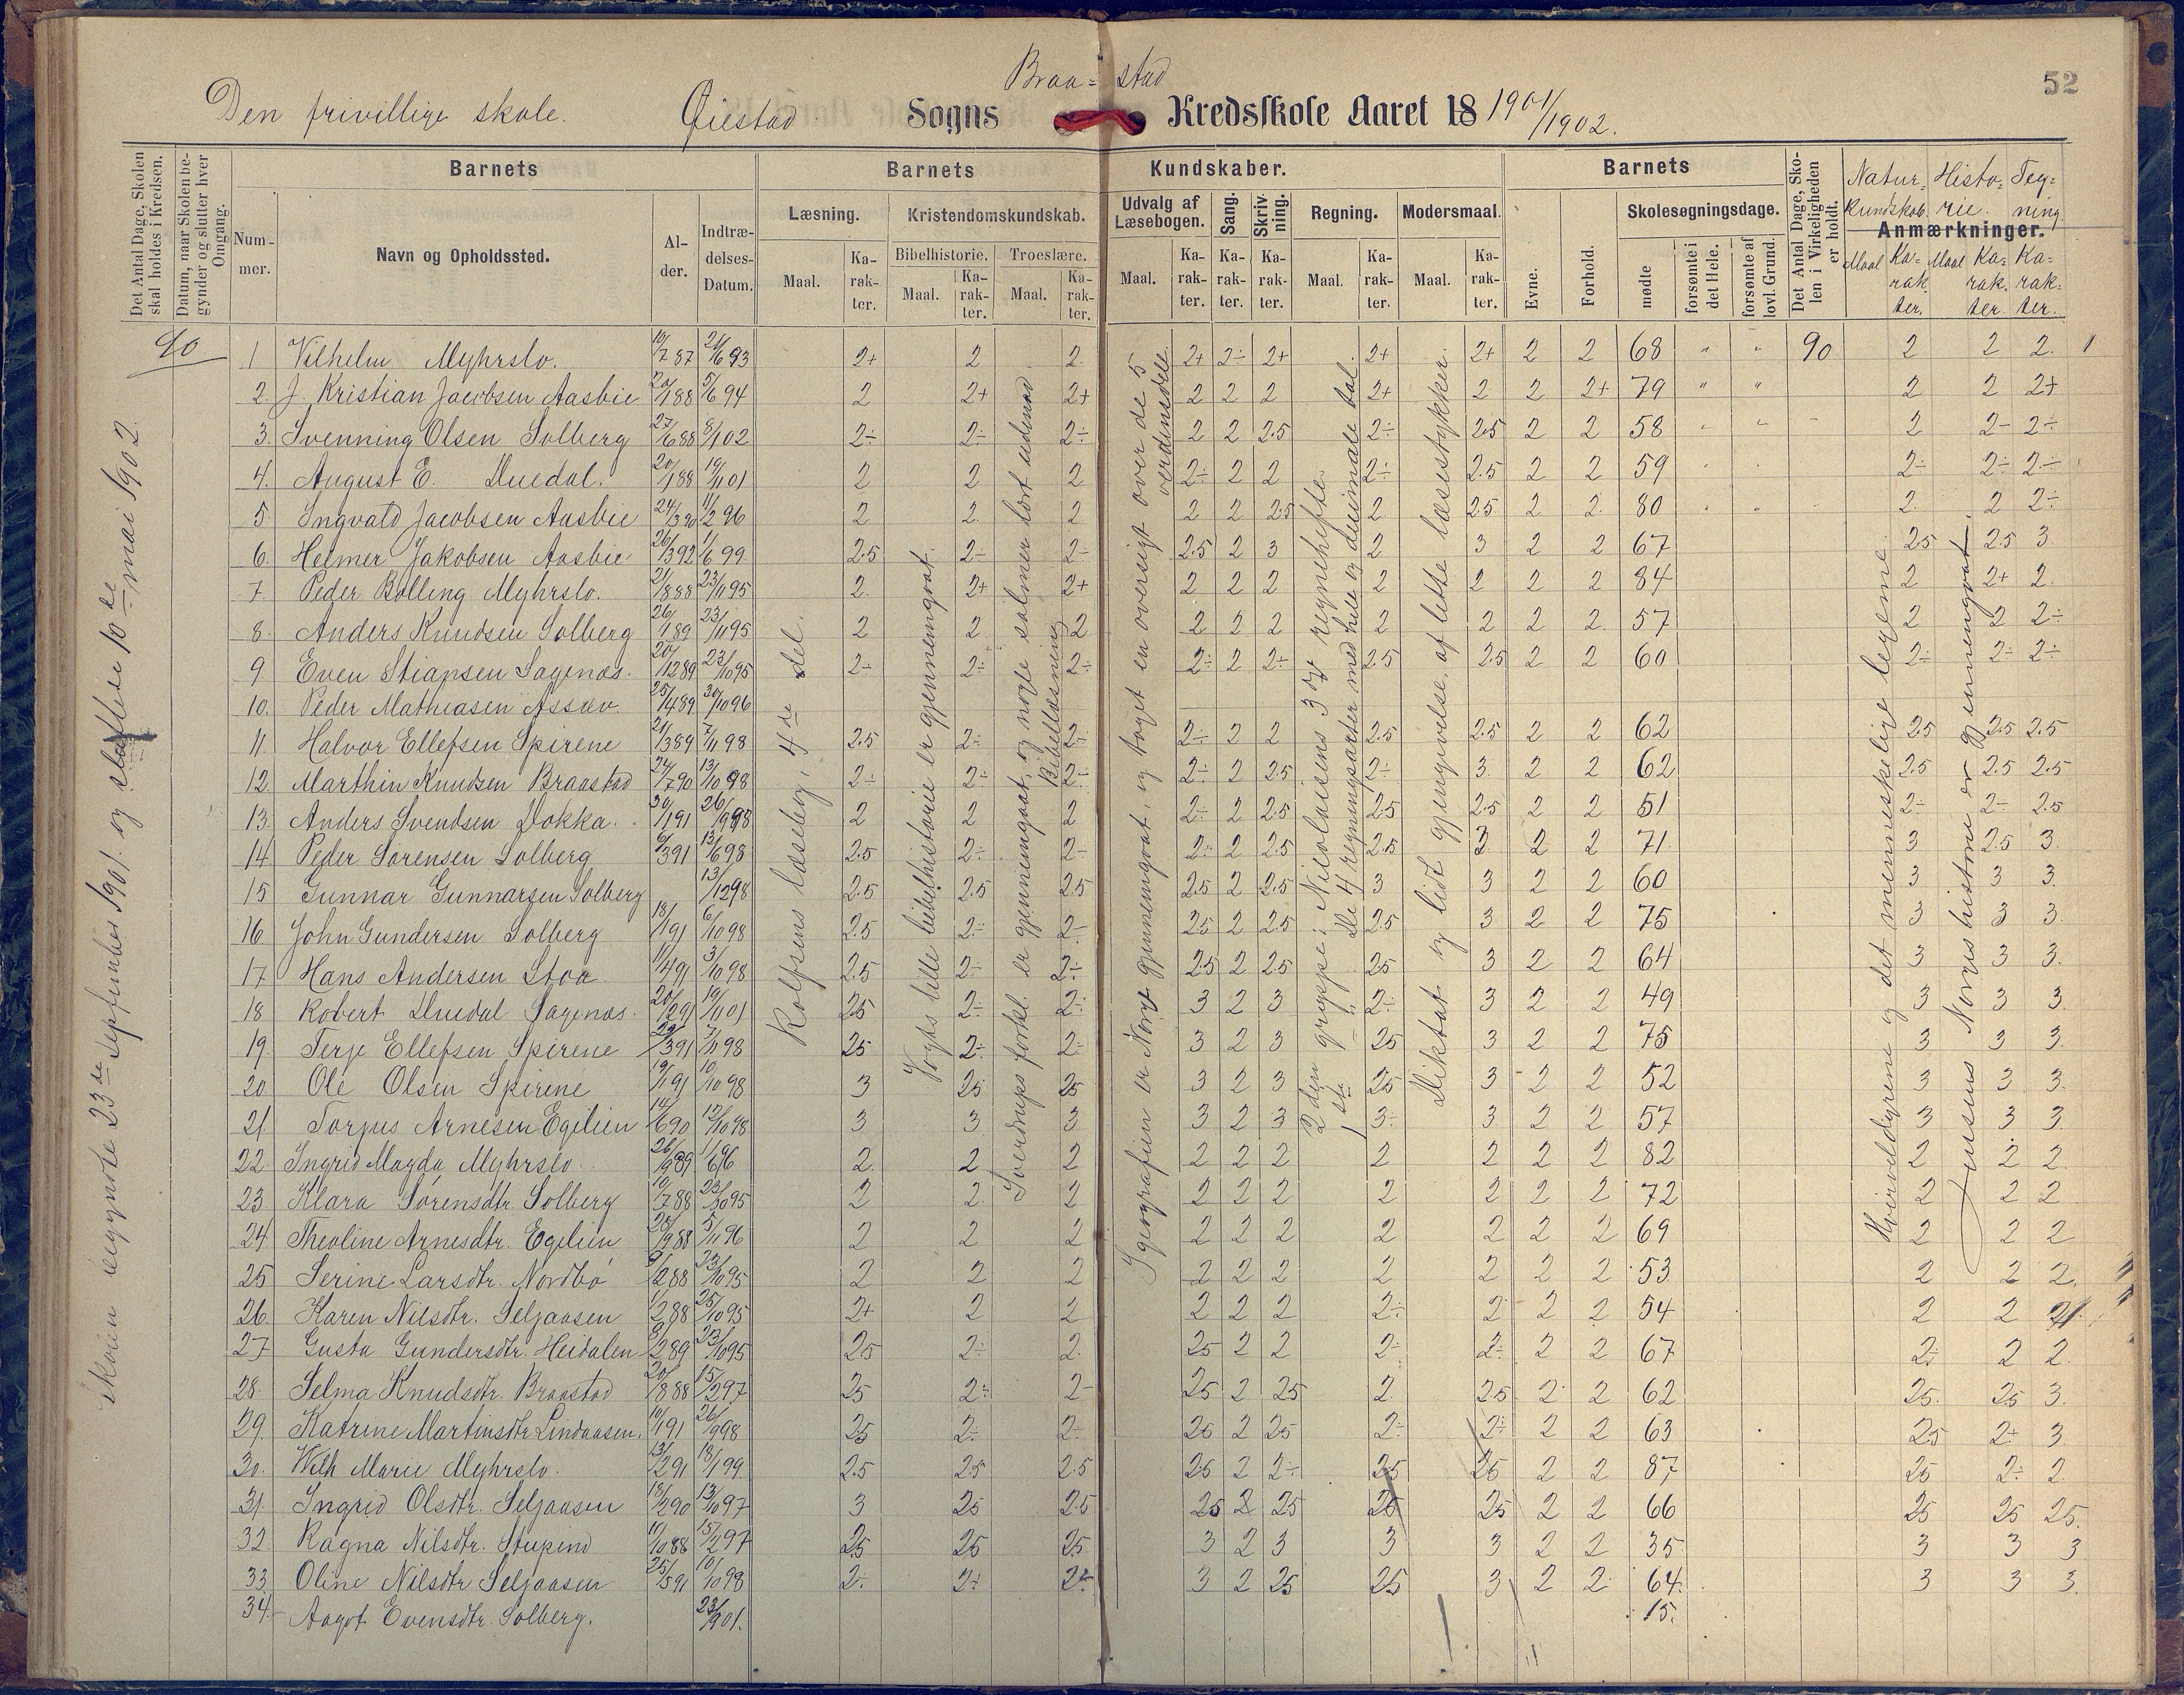 52
Braa- stad
Den frivillige skole. Øiestad Sogns Kredsskole Aaret 18 1901/1902.
Det Antal Dage, Skolen skal holdes i Kredsen.
Datum, naar Skolen begynder og slutter hver Omgang.
Barnets
Nummer. Navn og Opholdssted. Alder. Indtrædelses-Datum.
Barnets Kundskaber.
Læsning. Maal. Karakter.
Kristendomskundskab.
Bibelhistorie. Maal. Karakter.
Troeslære. Maal. Karakter.
Udvalg af Læsebogen. Maal. Karakter.
Sang. Karakter.
Skrivning. Karakter.
Regning. Maal. Karakter.
Modersmaal. Maal. Karakter.
Barnets
Evne. Forhold.
Skolesøgningsdage.
mødte forsømte i det Hele. forsømte af lovl. Grund.
Det Antal Dage, Skolen i Virkeligheden er holdt.
Natur- kundskab. Histo- rie. Teg- ning.
Anmærkninger.
Maal Ka- rak ter. Maal Ka- rak. ter. Ka- rak- ter.
90
Skolen begyndte 23de September 1901. og sluttede 10de mai 1902.
Rolfsens læsebog, 4de del.
Vogts lille bibelhistorie er gjennemgaat.
Sverdrups forkl. er gjennemgaat, og nogle salmer lært udenad
Bibellæsning
I geografien er Norge gjennemgaat, og taget en oversigt over de 5 verdensdele.
2den gruppe: Nicolaisens 3die regnehefte.
1ste —"— De 4 regningsarter med hele og decimale tal.
Diktat og lidt gjengivelse af lette læsestykker.
Hvirveldyrene og det menneskelige legeme.
Jensens Norges historie er gjennemgaat.
1 Vilhelm Myhrslo. 10/7 87 21/6 93 2+ 2 2. 2+ 2÷ 2+ 2+ 2+ 2 2 68 " " 90 2 2 2.
2. J. Kristian Jacobsen Aasbie 20/1 88 5/6 94 2 2+ 2+ 2 2 2 2+ 2 2 2+ 79 " " 2 2 2+
3. Svenning Olsen Solberg 27/6 88 8/1 02 2÷ 2÷ 2÷ 2 2 2.5 2÷ 2.5 2 2 58 2 2÷ 2÷
4. August E. Duedal. 20/1 88 19/11 01 2 2 2 2÷ 2 2 2÷ 2.5 2 2 59 2÷ 2÷ 2÷
5. Ingvald Jacobsen Aasbie 24/3 90 11/2 96 2 2. 2 2 2 2.5 2. 2.5 2 2. 80 2. 2 2÷
6. Helmer Jakobsen Aasbie 26/3 92 1/6 99 2.5 2÷ 2÷ 2.5 2 3 2 3 2 2 67 2.5 2.5 3
7. Peder Bolling Myhrslo. 21/8 88 23/11 95 2. 2+ 2+ 2 2 2 2 2 2 2 84 2 2+ 2.
8. Anders Knudsen Solberg 26/1 89 23/11 95 2 2 2 2 2 2 2 2 2 2. 57 2 2 2÷
9 Even Stiansen Sagenæs. 20/12 89 23/10 95 2÷ 2÷ 2÷ 2÷ 2 2÷ 2.5 2.5 2 2 60 2÷ 2÷ 2÷
10. Peder Mathiasen Assæv. 25/4 89 30/10 96
11 Halvor Ellefsen Spirene 21/3 89 7/11 98 2.5 2÷ 2÷ 2÷ 2 2 2.5 2.5 2 2 62 2.5 2.5 2.5
12. Marthin Knudsen Braastad 24/7 90 13/10 98 2÷ 2÷ 2÷ 2÷ 2 2.5 2÷ 3. 2 2 62 2.5 2.5 2.5
13. Anders Svendsen Dokka. 30/1 91 26/9 98 2 2 2 2÷ 2 2.5 2.5 2.5 2 2 51 2÷ 2÷ 2.5
14. Peder Sørensen Solberg 6/3 91 13/6 98 2.5 2÷ 2÷ 2÷ 2 2.5 2.5 3. 2 2 71. 3 2.5 3.
15 Gunnar Gunnarsen Solberg 13/12 98 2.5 2.5 2.5 2.5 2 2.5 3 3 2 2 60 3 3 3.
16. John Gundersen Solberg 18/1 91 6/10 98 2.5 2÷ 2÷ 2.5 2 2.5 2.5 3 2 2 75 3 3 3.
17 Hans Andersen Stoa 11/4 91 3/10 98 2.5 2÷ 2÷ 2.5 2 2.5 2.5 3 2 2 64 3 3 3.
18 Robert Duedal Sagenæs. 20/2 91 19/11 01 2.5 2÷ 2÷ 3 2 3 2÷ 3 2 2 49 3 3 3.
19. Terje Ellefsen Spirene 29/3 91 7/11 98 25 2÷ 2÷ 3 2 3 25 3 2 2 75 3 3 3.
20 Ole Olsen Spirene 19/1 91 10/10 98 3 25 25 3 2 3 25 3 2 2 52 3 3 3.
21 Torjus Arnesen Egelien 14/6 90 12/10 98 3 3 3 3 2 3 3÷ 3. 2 2 57 3 3 3.
22. Ingrid Magda Myhrslo. 26/9 89 1/6 96 2. 2 2 2 2 2 2 2 2 2 82 2 2 2.
23 Klara Sørensdtr. Solberg 10/7 88 23/10 95 2 2. 2 2 2 2 2 2 2 2 72 2 2 2
24. Theoline Arnesdtr. Egelien 28/9 88 5/11 96 2 2 2 2 2 2 2 2 2 2 69 2 2 2
25 Serine Larsdtr. Nordbø 9/2 88 23/10 95 2 2 2 2 2 2 2 2 2 2 53 2 2 2.
26. Karen Nilsdtr. Seljaasen 11/2 88 25/10 95 2+ 2 2 2 2 2 2÷ 2 2 2 54 2 2
27 Gusta Gundersdtr. Heidalen 9/2 89 23/10 95 25 2÷ 2. 25 2 2 2÷ 2÷ 2 2 67 2÷ 2 2.
28 Selma Knudsdtr. Braastad 20/8 88 15/2 97 25 2÷ 2÷ 25 2 25 2. 25 2 2 62 25. 25 3.
29. Katrine Martinsdtr Lindaasen. 10/1 91 26/9 98 25 2÷ 2÷ 25 2 25 2÷ 2÷ 2 2 63 25 2+ 3.
30. Wilh Marie Myhrslo. 13/2 91 18/1 99 2.5 2.5 2.5 25 2 2÷ 25 25 2 2 87 25 2÷ 2
31. Ingrid Olsdtr. Seljaasen 18/2 90 13/10 97 3 25 2.5 25 2 25 25 25 2 2 66 25 25 25.
32 Ragna Nilsdtr. Stupind 11/10 88 15/2 97 25 25 25 3 2 3 3 3 2 2 35 3 3 3
33. Oline Nilsdtr Seljaasen 25/5 91 10/10 98 2÷ 2÷ 2÷ 3 2 25 25 3 2 2. 64. 3 3 3.
34. Aagot Evensdtr. Solberg. 23/9 01. 15.